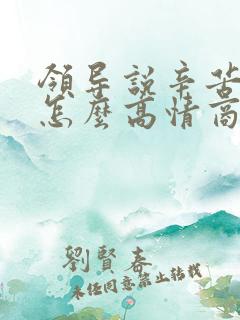 領导說辛苦
怎麽高情商
劉賢春
未经同意禁止转载